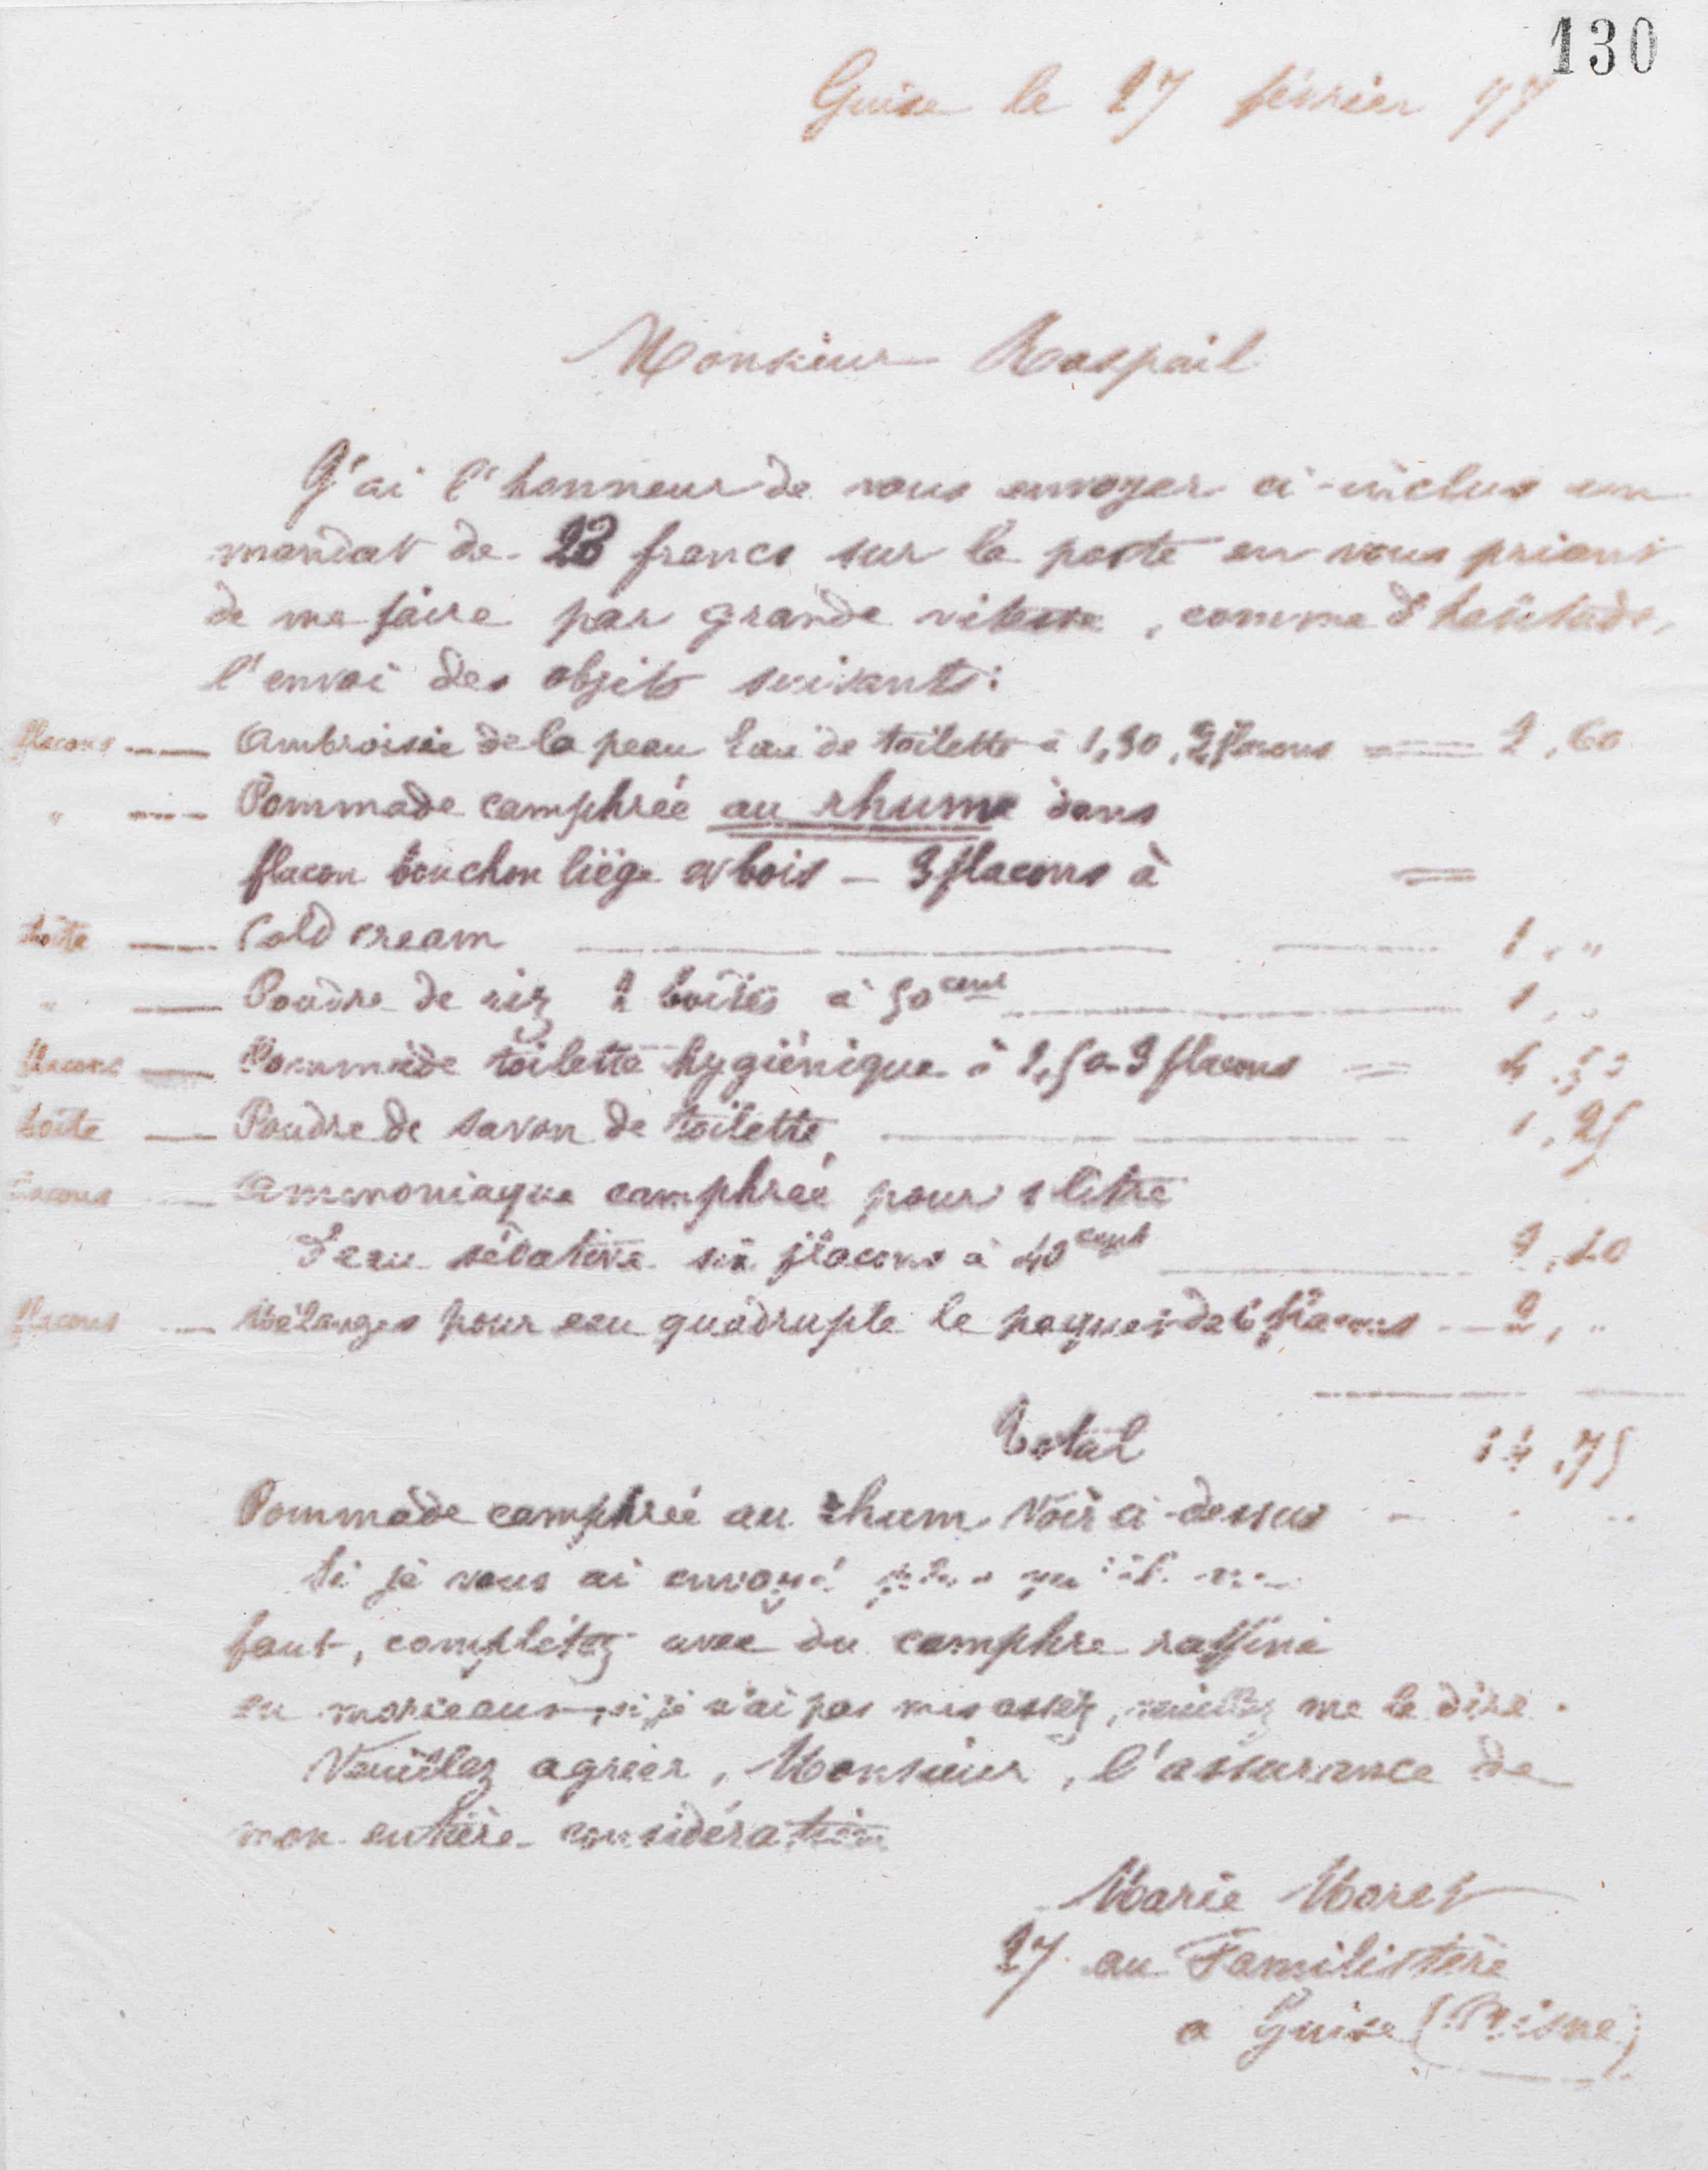 130
Guise le 27 février 77
Monsieur Raspail
J'ai l'honneur de vous envoyer ci-inclus un
mandat de 20 francs sur la poste en vous priant
de me faire par grande vitesse, comme d'habitude,
l'envoi des objets suivants:
flacons — Ambroisie de la peau Eau de toilette à 1,30, 2 flacons = 2,60
" — Pommade camphrée au rhume dans
flacon bouchon liège et bois — 3 flacons à =
boîte — Cold cream — 1, "
" — Poudre de riz 2 boîtes à 50 cent — 1, "
flacons — Pommade toilette hygiénique à 1,50 3 flacons = 4,50
boîte — Poudre de savon de toilette — 1,25
flacons — Ammoniaque camphrée pour 1 litre
d'eau sédative six flacons à 40 cent — 2,40
flacons — Mélanges pour eau quadruple le paquet de 6 flacons — 2, "
Total 14,75
Pommade camphrée au rhum. Voir ci-dessus -
Si je vous ai envoyé plus qu'il ne
faut, complétez avec du camphre raffiné
en morceaux, si je n'ai pas mis assez, veuillez me le dire.
Veuillez agréer, Monsieur, l'assurance de
mon entière considération
Marie Moret
27 au Familistère
à Guise (Aisne)